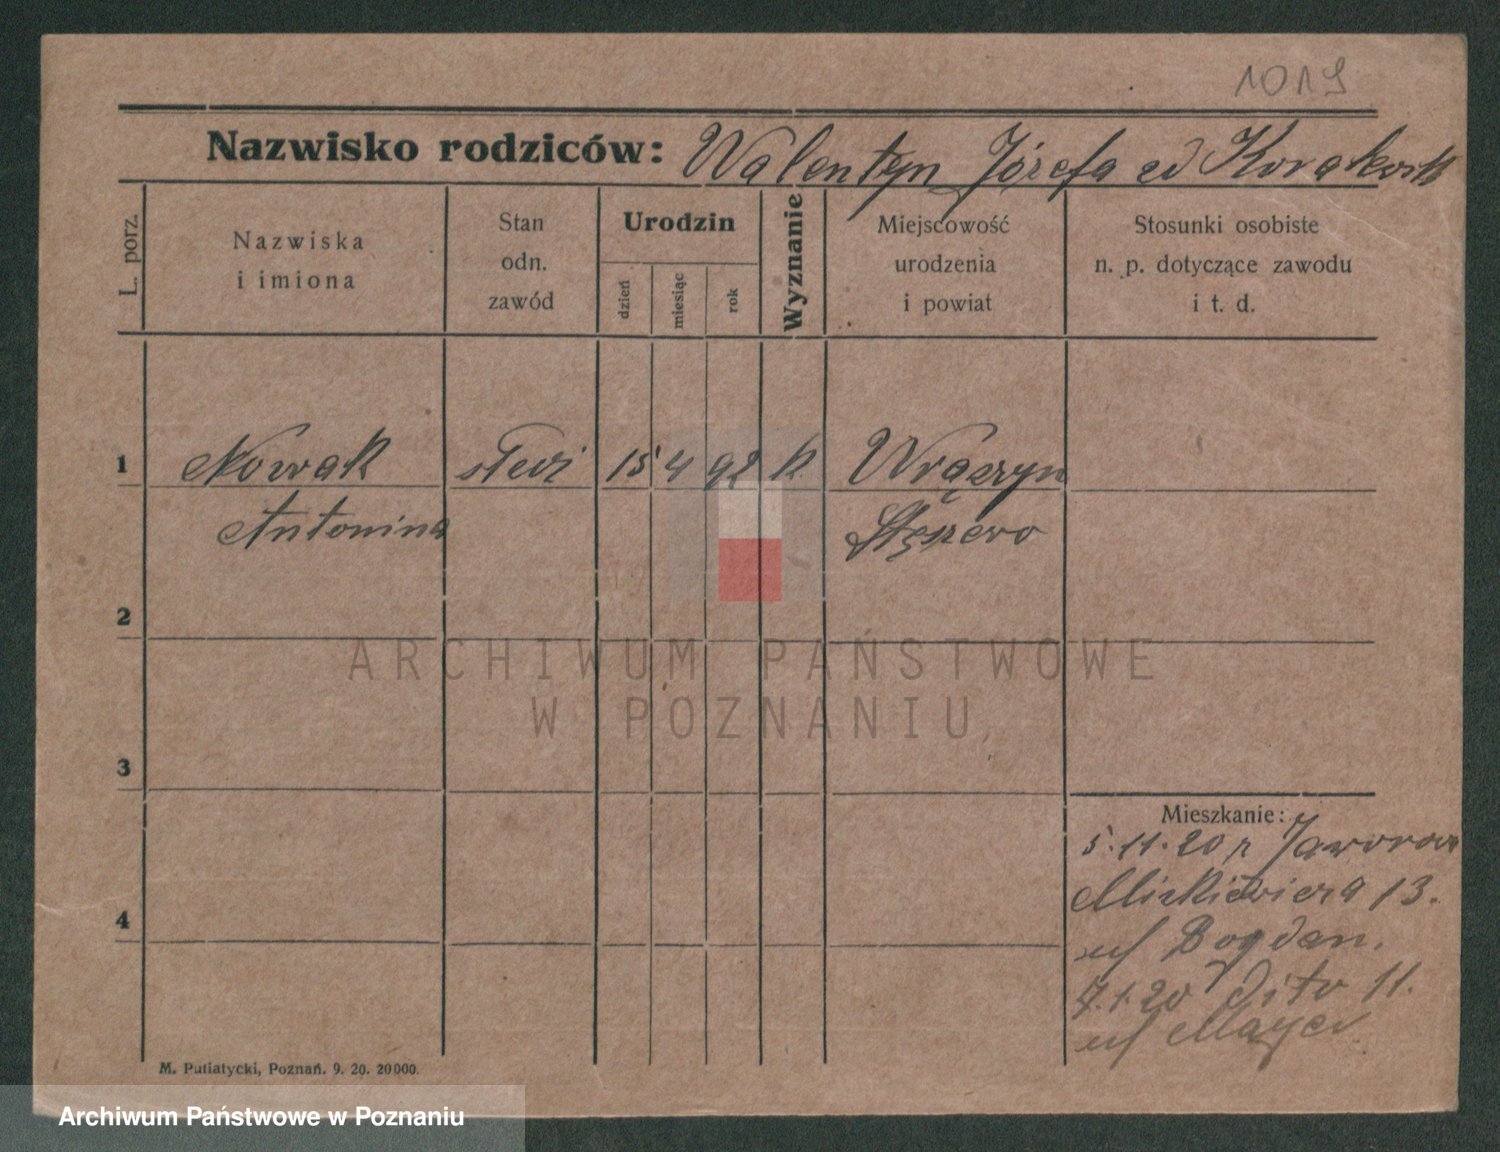 1019
Nazwisko rodziców: Walentyn Józefa zd
L. porz.
Nazwiska
i imiona
Stan
odn.
zawód
Urodzin
dzień
miesiąc
rok
Wyznanie
Miejscowość
urodzenia
i powiat
Stosunki osobiste
n. p. dotyczące zawodu
i t. d.
1 Nowak 15 4 92 k. Wrączyn
Antonina Stęszewo
2
ARCHIWUM PAŃSTWOWE
W POZNANIU
3
Mieszkanie:
5.11.20 z
4 13.
Bogdan.
7.1.20 dito 11.
Mayer
M. Putiatycki, Poznań. 9. 20. 20000.
Archiwum Państwowe w Poznaniu